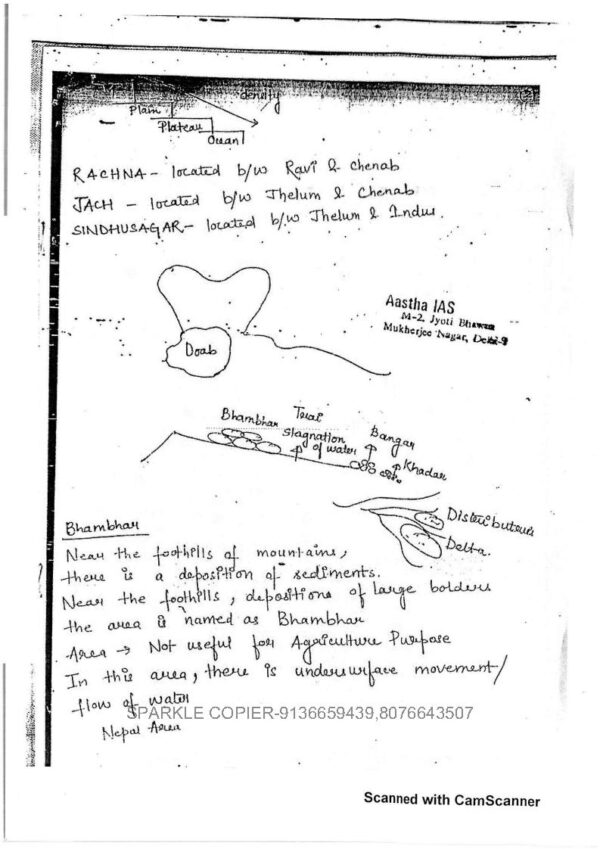 density
Plain
Plateau
Ocean
RACHNA - located b/w Ravi & Chenab
JACH - located b/w Jhelum & Chenab
SINDHUSAGAR - located b/w Jhelum & Indus.
Aastha IAS
M-2, Jyoti Bhawan
Mukherjee Nagar, Delhi-9
Doab
Bhambhar
Terai
Stagnation
of water
Bangar
Khadar
Distributeries
Delta.
Bhambhar
Near the foothills of mountains,
there is a deposition of sediments.
Near the foothills, depositions of large bolders
the area is named as Bhambhar
Area → Not useful for Agriculture Purpose
In this area, there is undersurface movement/
flow of water
SPARKLE COPIER-9136659439,8076643507
Nepal Area
Scanned with CamScanner